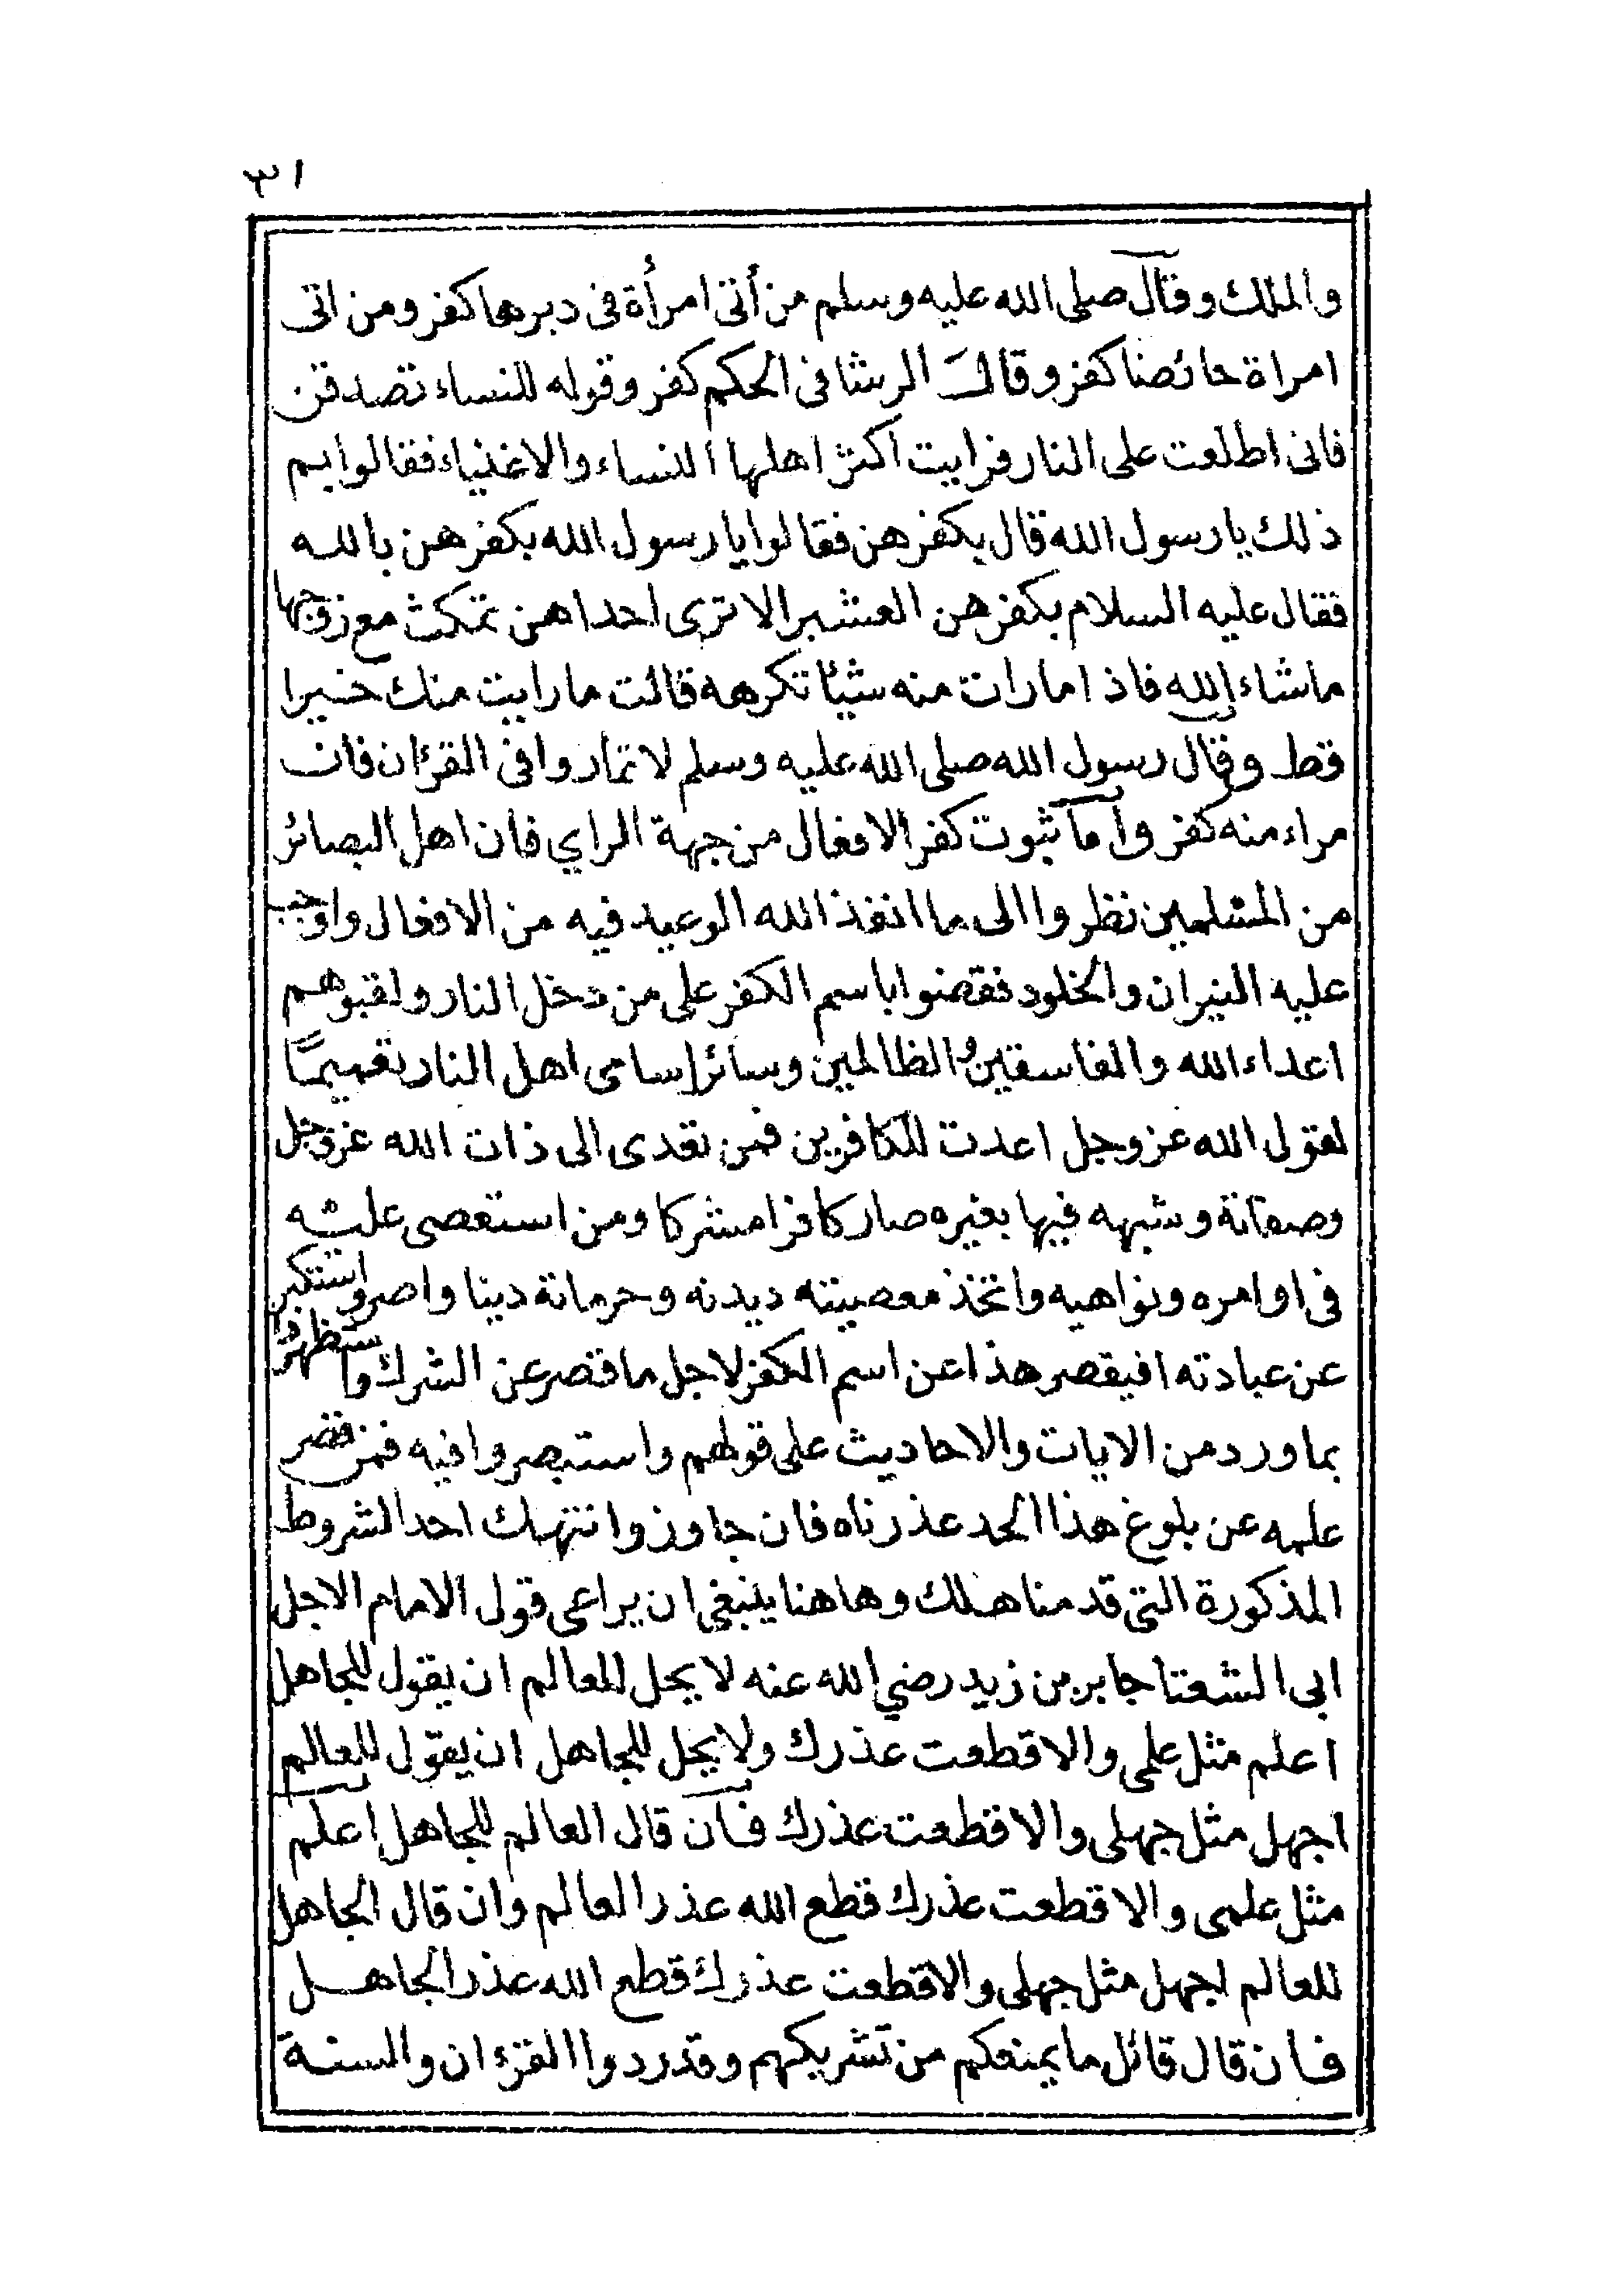 ٣١
والملك وقال صلى الله عليه وسلم من أتى امرأة فى دبرها كفر ومن اتى
امراة حائضا كفر وقال الرشا فى الحكم كفر وقوله للنساء تصدقن
فانى اطلعت على النار فرايت اكثر اهلها النساء والاغنياء فقالوا بم
ذلك يا رسول الله قال بكفرهن فقالوا يا رسول الله بكفرهن بالله
فقال عليه السلام بكفرهن العشير الا ترى احداهن تمكث مع زوجها
ما شاء الله فاذا ما رات منه شيئا تكرهه قالت ما رايت منك خيرا
قط وقال رسول الله صلى الله عليه وسلم لا تماروا فى القرءان فان
مراء منه كفر وأما ثبوت كفر الافعال من جهة الراي فان اهل البصائر
من المسلمين نظروا الى ما انفذ الله الوعيد فيه من الافعال واوجب
عليه النيران والخلود فقضوا باسم الكفر على من دخل النار ولقبوهم
اعداء الله والفاسقين والظالمين وسائر اسامى اهل النار تعميمًا
لقول الله عز وجل اعدت للكافرين فمن تعدى الى ذات الله عز وجل
وصفاته وشبهه فيها بغيره صار كافرا مشركا ومن استعصى عليه
فى اوامره ونواهيه واتخذ معصيته ديدنه وحرماته دينا واصر واستكبر
عن عبادته افيقصر هذا عن اسم الكفر لاجل ما قصر عن الشرك واستظهروا
بما ورد من الايات والاحاديث على قولهم واستبصروا فيه فمن قصر
علمه عن بلوغ هذا الحد عذرناه فان جاوز وانتهك احد الشروط
المذكورة التى قدمنا هلك وهاهنا ينبغي ان يراعى قول الامام الاجل
ابى الشعثا جابر بن زيد رضي الله عنه لا يحل للعالم ان يقول للجاهل
اعلم مثل علمى والا قطعت عذرك ولا يحل للجاهل ان يقول للعالم
اجهل مثل جهلى والا قطعت عذرك فان قال العالم للجاهل اعلم
مثل علمى والا قطعت عذرك قطع الله عذر العالم وان قال الجاهل
للعالم اجهل مثل جهلى والا قطعت عذرك قطع الله عذر الجاهل
فان قال قائل ما يمنعكم من تشريكهم وقد ردوا القرءان والسنة